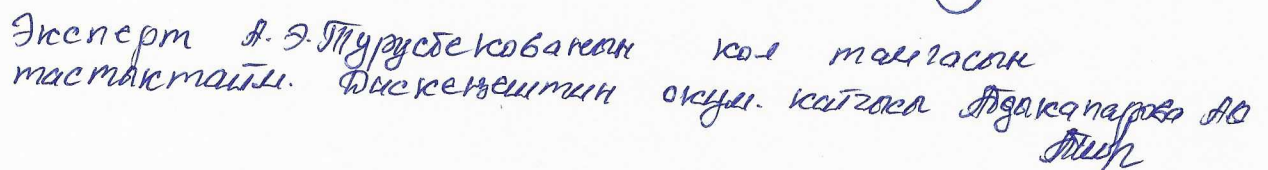 Эксперт А. Э. Турусбекованын кол тамгасын
тастыктайм. Дискеңештин окум. катчысы Абдыкапарова АО